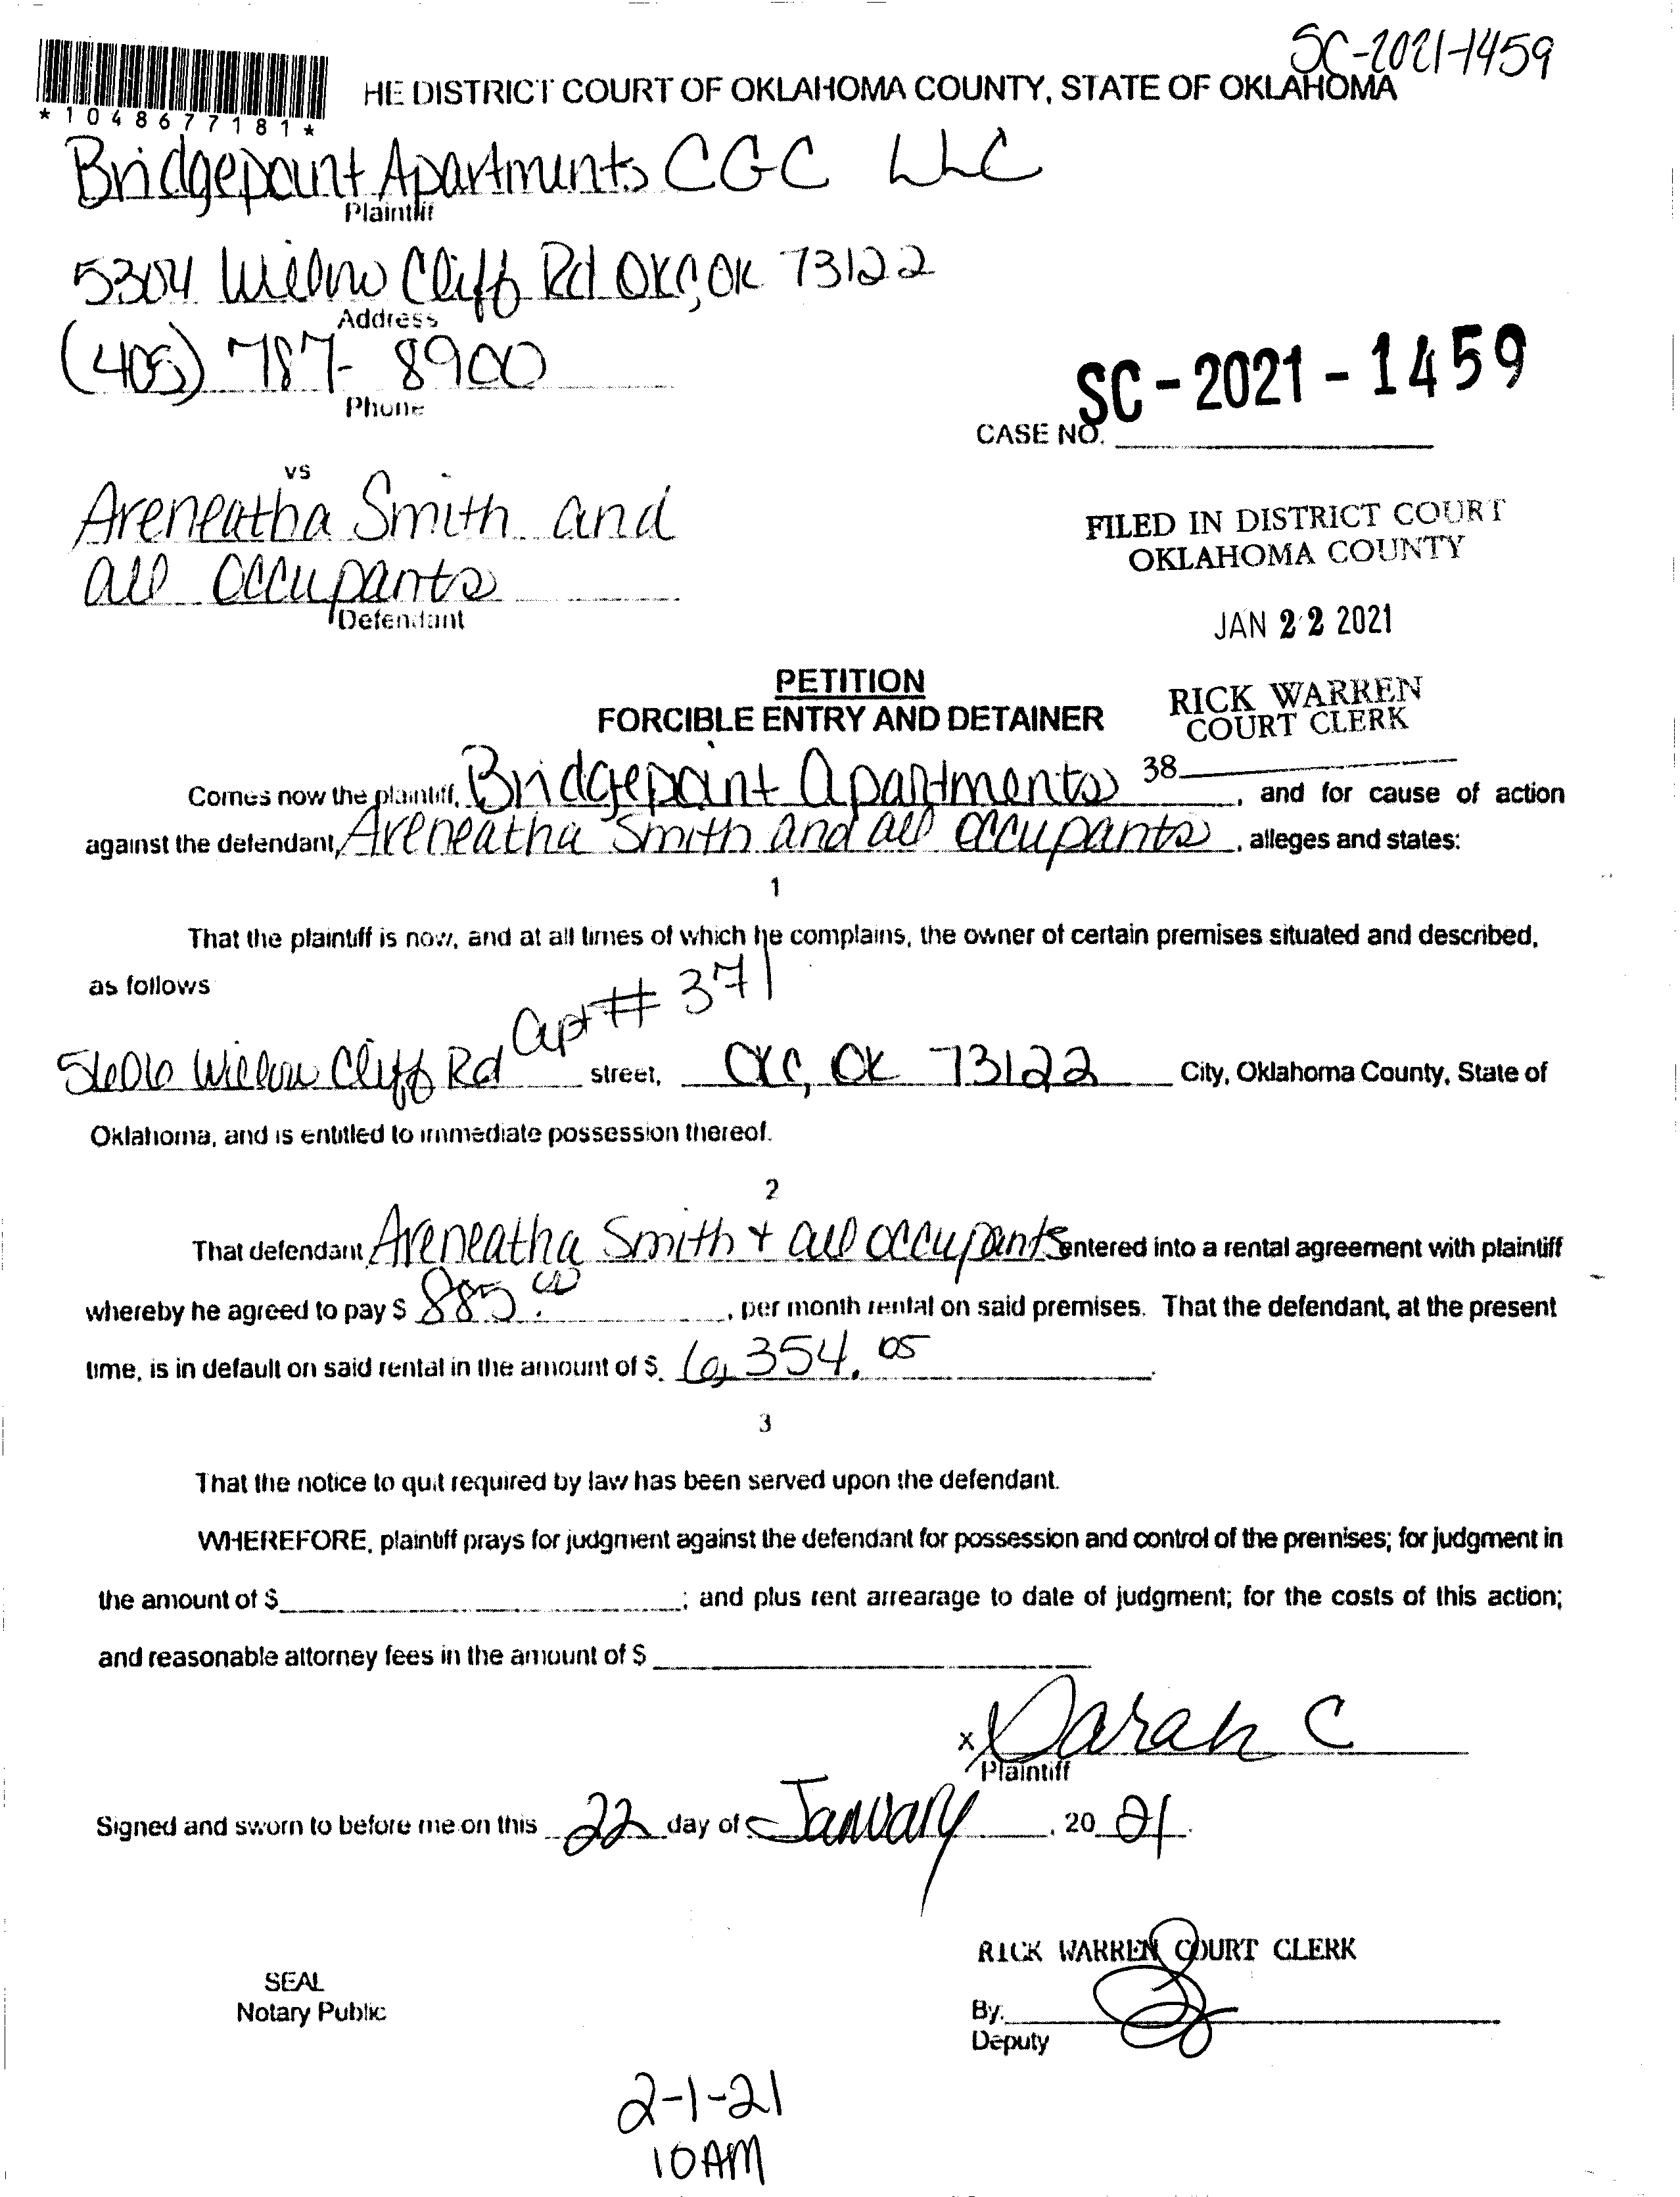 SC-2021-1459
HE DISTRICT COURT OF OKLAHOMA COUNTY, STATE OF OKLAHOMA
*1048677181*
Bridgepoint Apartments CGC LLC
Plaintiff
5304 Willow Cliff Rd OKC, OK 73122
Address
(405) 787-8900
Phone
SC-2021-1459
CASE NO.
vs
Areneatha Smith and
all occupants
Defendant
FILED IN DISTRICT COURT
OKLAHOMA COUNTY
JAN 22 2021
RICK WARREN
COURT CLERK
38
PETITION
FORCIBLE ENTRY AND DETAINER
Comes now the plaintiff, Bridgepoint Apartments, and for cause of action
against the defendant, Areneatha Smith and all occupants, alleges and states:
1
That the plaintiff is now, and at all times of which he complains, the owner of certain premises situated and described,
as follows
Apt # 371
5606 Willow Cliff Rd street, OKC, OK 73122 City, Oklahoma County, State of
Oklahoma, and is entitled to immediate possession thereof.
2
That defendant Areneatha Smith + all occupants entered into a rental agreement with plaintiff
whereby he agreed to pay $ 885.00, per month rental on said premises. That the defendant, at the present
time, is in default on said rental in the amount of $ 6,354.05.
3
That the notice to quit required by law has been served upon the defendant.
WHEREFORE, plaintiff prays for judgment against the defendant for possession and control of the premises; for judgment in
the amount of $; and plus rent arrearage to date of judgment; for the costs of this action;
and reasonable attorney fees in the amount of $
x Sarah C
Plaintiff
Signed and sworn to before me on this 22 day of January, 2021.
RICK WARREN COURT CLERK
SEAL
Notary Public
By:
Deputy
2-1-21
10AM